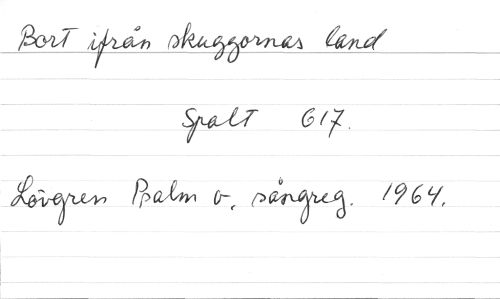 Bort ifrån skuggornas land
Spalt 617.
Lövgren Psalm o. sångreg. 1964.